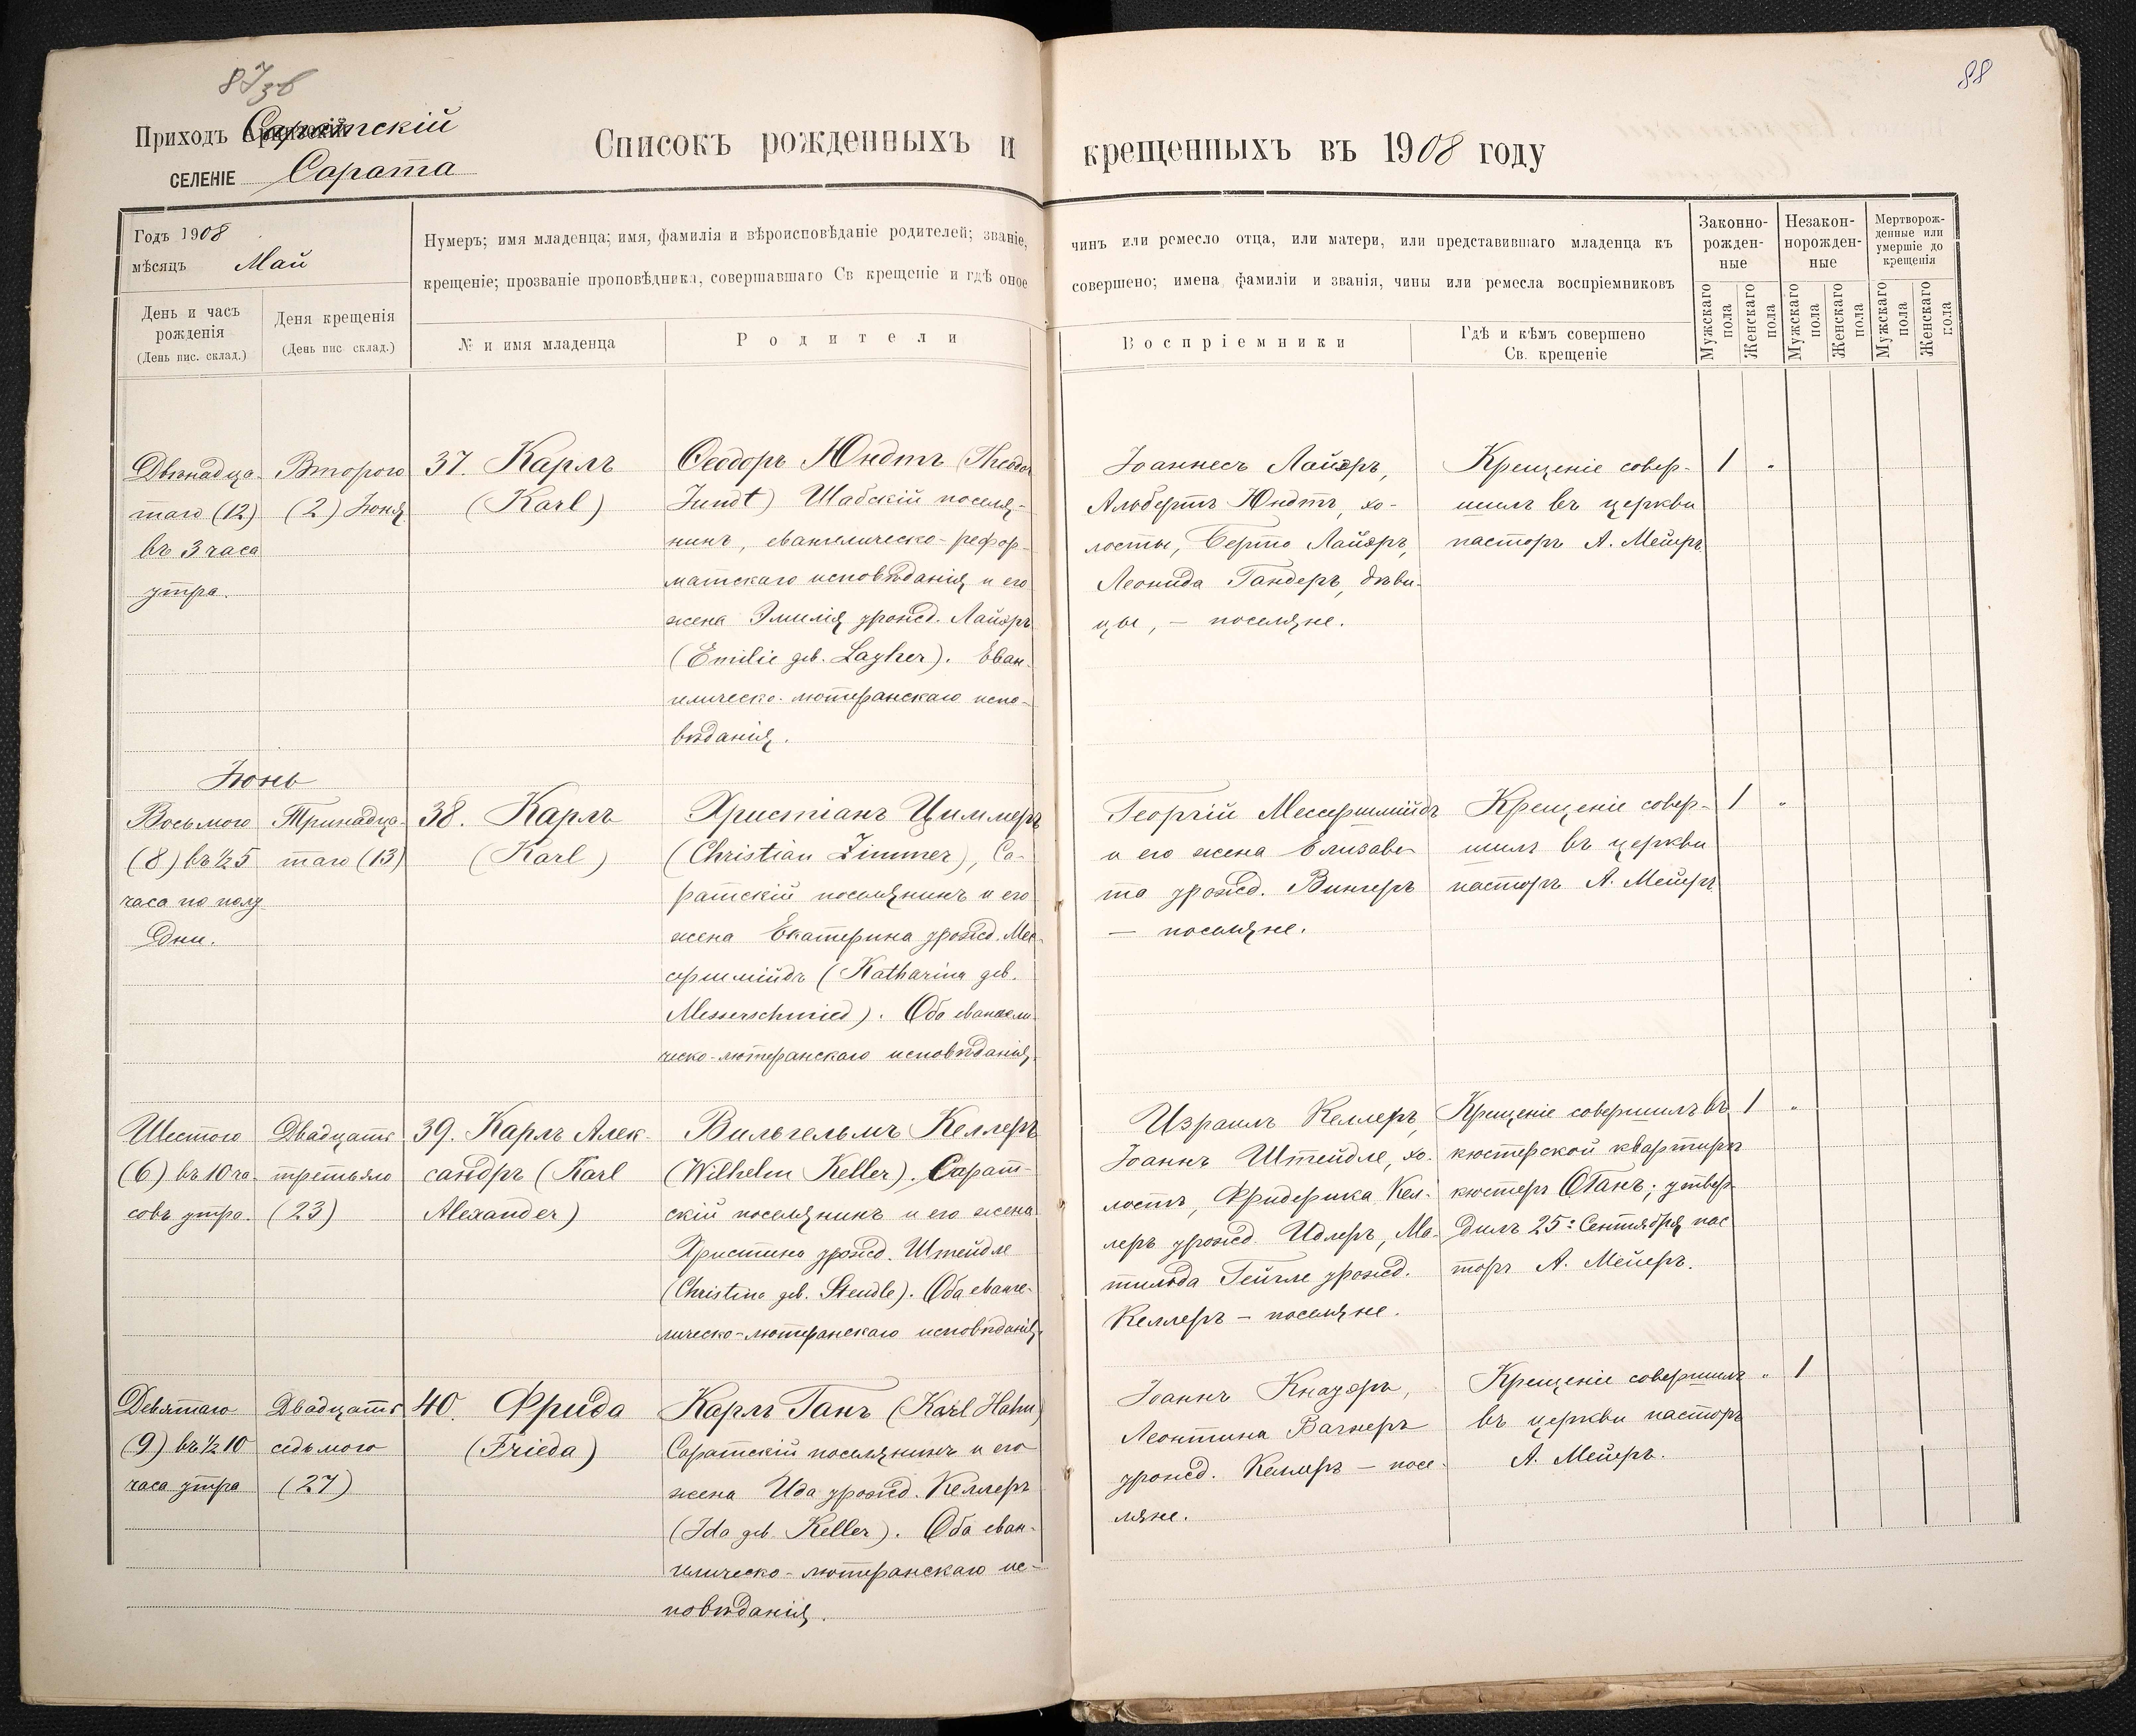 87 зв
88
Приходъ Саратскій
СЕЛЕНІЕ Сарата
Списокъ рожденныхъ и крещенныхъ въ 1908 году
Годъ 1908
мѣсяцъ Май
День и часъ
рожденія
(День пис. склад.)
Деня крещенія
(День пис склад.)
Нумеръ; имя младенца; имя, фамилія и вѣроисповѣданіе родителей; званіе,
крещеніе; прозваніе проповѣдника, совершавшаго Св крещеніе и гдѣ оное
№ и имя младенца
Родители
чинъ или ремесло отца, или матери, или представившаго младенца къ
совершено; имена фамиліи и званія, чины или ремесла воспріемниковъ
Воспріемники
Гдѣ и кѣмъ совершено
Св. крещеніе
Законно-
рожден-
ные
Незакон-
норожден-
ные
Мертворож-
денные или
умершіе до
крещенія
Мужскаго
пола
Женскаго
пола
Мужскаго
пола
Женскаго
пола
Мужскаго
пола
Женскаго
пола
Двѣнадца-
таго (12)
въ 3 часа
утра.
Второго
(2) Іюня
37. Карлъ
(Karl)
Ѳеодоръ Юндтъ (Theodor
Jundt) Шабскій поселя-
нинъ, евангелическо-рефор-
матскаго исповѣданія и его
жена Эмилія урожд. Лайэръ
(Emilie geb. Layher). Еван-
гелическо-лютеранскаго испо-
вѣданія.
Іоаннесъ Лайэръ,
Альбертъ Юндтъ, хо-
лосты, Берта Лайэръ,
Леонида Гандеръ, дѣви-
цы, — поселяне.
Крещеніе совер-
шилъ въ церкви
пасторъ А. Мейеръ
1 "
Іюнь
Восьмого
(8) въ ½5
часа по полу
дни.
Тринадца-
таго (13)
38. Карлъ
(Karl)
Христіанъ Циммеръ
(Christian Zimmer), Са-
ратскій поселянинъ и его
жена Екатерина урожд. Мес-
сершмійдъ (Katharina geb.
Messerschmied). Оба евангели-
ческо-лютеранскаго исповѣданія.
Георгій Мессершмійдъ
и его жена Елизаве-
та урожд. Вингеръ
— поселяне.
Крещеніе совер-
шилъ въ церкви
пасторъ А. Мейеръ
1 "
Шестого
(6) въ 10 ча-
совъ утра.
Двадцать
третьяго
(23)
39. Карлъ Алек-
сандръ (Karl
Alexander)
Вильгельмъ Келлеръ
(Wilhelm Keller). Сарат-
скій поселянинъ и его жена
Христина урожд. Штейдле
(Christina geb. Steudle). Оба еванге-
лическо-лютеранскаго исповѣданія.
Израилъ Келлеръ,
Іоаннъ Штейдле, хо-
лостъ, Фридерика Кел-
леръ урожд. Идлеръ, Ма-
тильда Гейгле урожд.
Келлеръ — поселяне.
Крещеніе совершилъ въ
кюстерской квартирѣ
кюстеръ О Ганъ; утвер-
дилъ 25: Сентября пас
торъ А. Мейеръ.
1 "
Девятаго
(9) въ ½ 10
часа утра
Двадцать
седьмого
(27)
40. Фрида
(Frieda)
Карлъ Ганъ (Karl Hahn)
Саратскій поселянинъ и его
жена Ида урожд. Келлеръ
(Ida geb. Keller). Оба еван-
гелическо-лютеранскаго ис-
повѣданія.
Іоаннъ Кнауэръ,
Леонтина Вагнеръ
урожд. Келлеръ — посе-
ляне.
Крещеніе совершилъ
въ церкви пасторъ
А. Мейеръ.
" 1